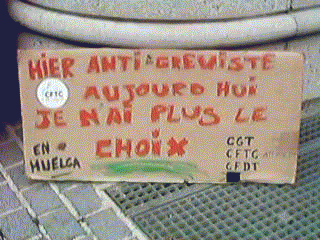 HIER ANTI-GREVISTE
CFTC
AUJOURD HUI
JE N'AI PLUS LE
CHOIX
EN
HUELGA
CGT
CFTC
CFDT